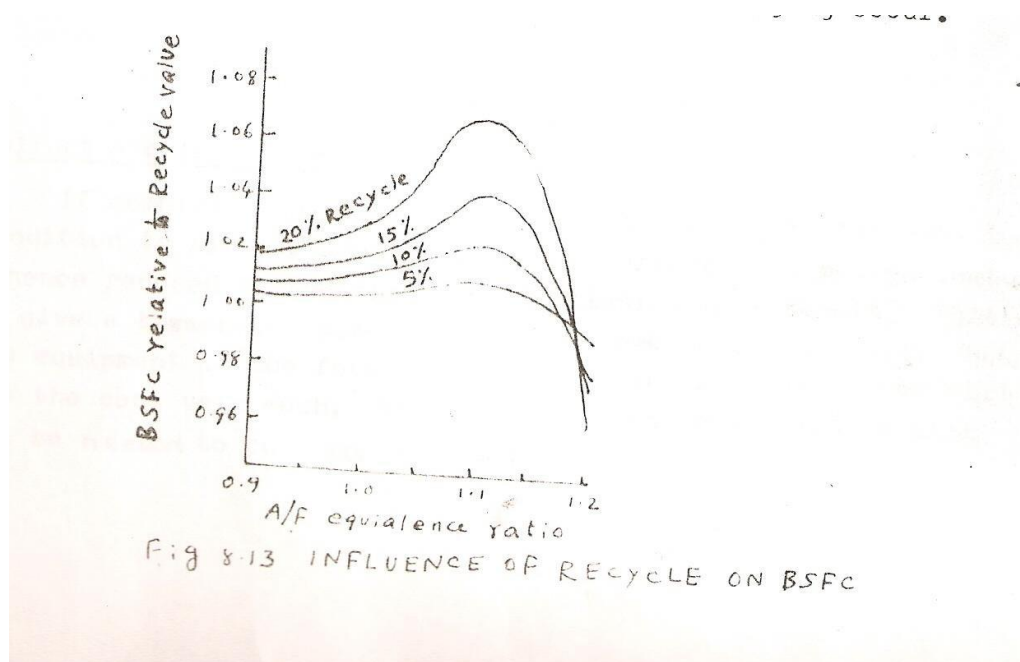 BSFC relative to Recycle value
1.08
1.06
1.04
1.02
1.00
0.98
0.96
20% Recycle
15%
10%
5%
0.9
1.0
1.1
1.2
A/F equialence ratio
Fig 8.13 INFLUENCE OF RECYCLE ON BSFC